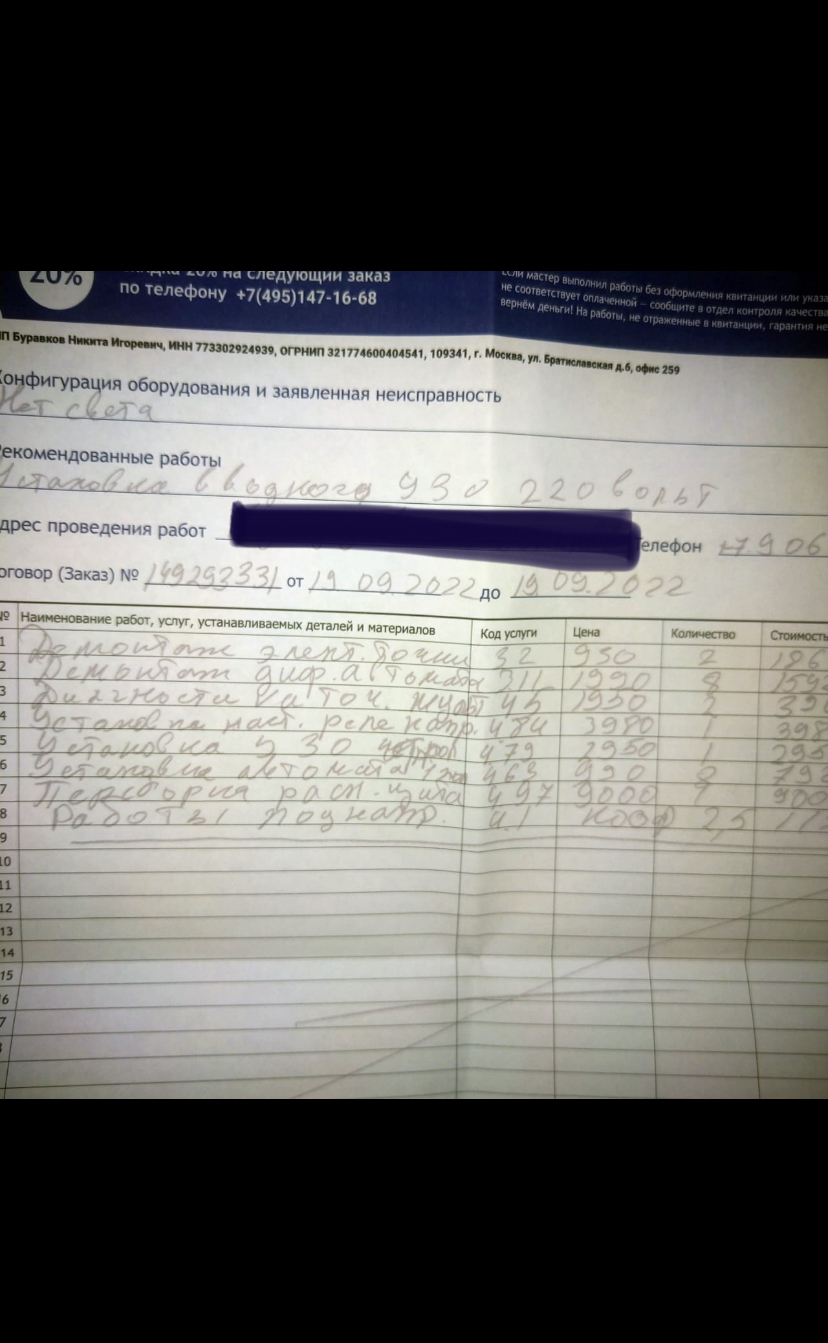 20%
скидка 20% на следующий заказ
по телефону +7(495)147-16-68
Если мастер выполнил работы без оформления квитанции или указа
не соответствует оплаченной – сообщите в отдел контроля качества
вернём деньги! На работы, не отраженные в квитанции, гарантия не
ИП Буравков Никита Игоревич, ИНН 773302924939, ОГРНИП 321774600404541, 109341, г. Москва, ул. Братиславская д.6, офис 259
Конфигурация оборудования и заявленная неисправность
Нет света
Рекомендованные работы
Установка вводного УЗО 220 вольт
Адрес проведения работ
Телефон +7906
Договор (Заказ) № 149293331 от 19.09.2022 до 19.09.2022
№ Наименование работ, услуг, устанавливаемых деталей и материалов Код услуги Цена Количество Стоимость
1 Демонтаж элект. точки 32 930 2 186
2 Демонтаж диф. автомата 211 1990 8 159
3 45 1950 2 390
4 Установка реле напр. 484 3980 1 398
5 Установка УЗО 479 2950 1 295
6 Установка автомата 463 990 8 792
7 расп. щита 497 9000 1 900
8 Работы под напр. 4.1 коэф 2,5
9
10
11
12
13
14
15
6
7